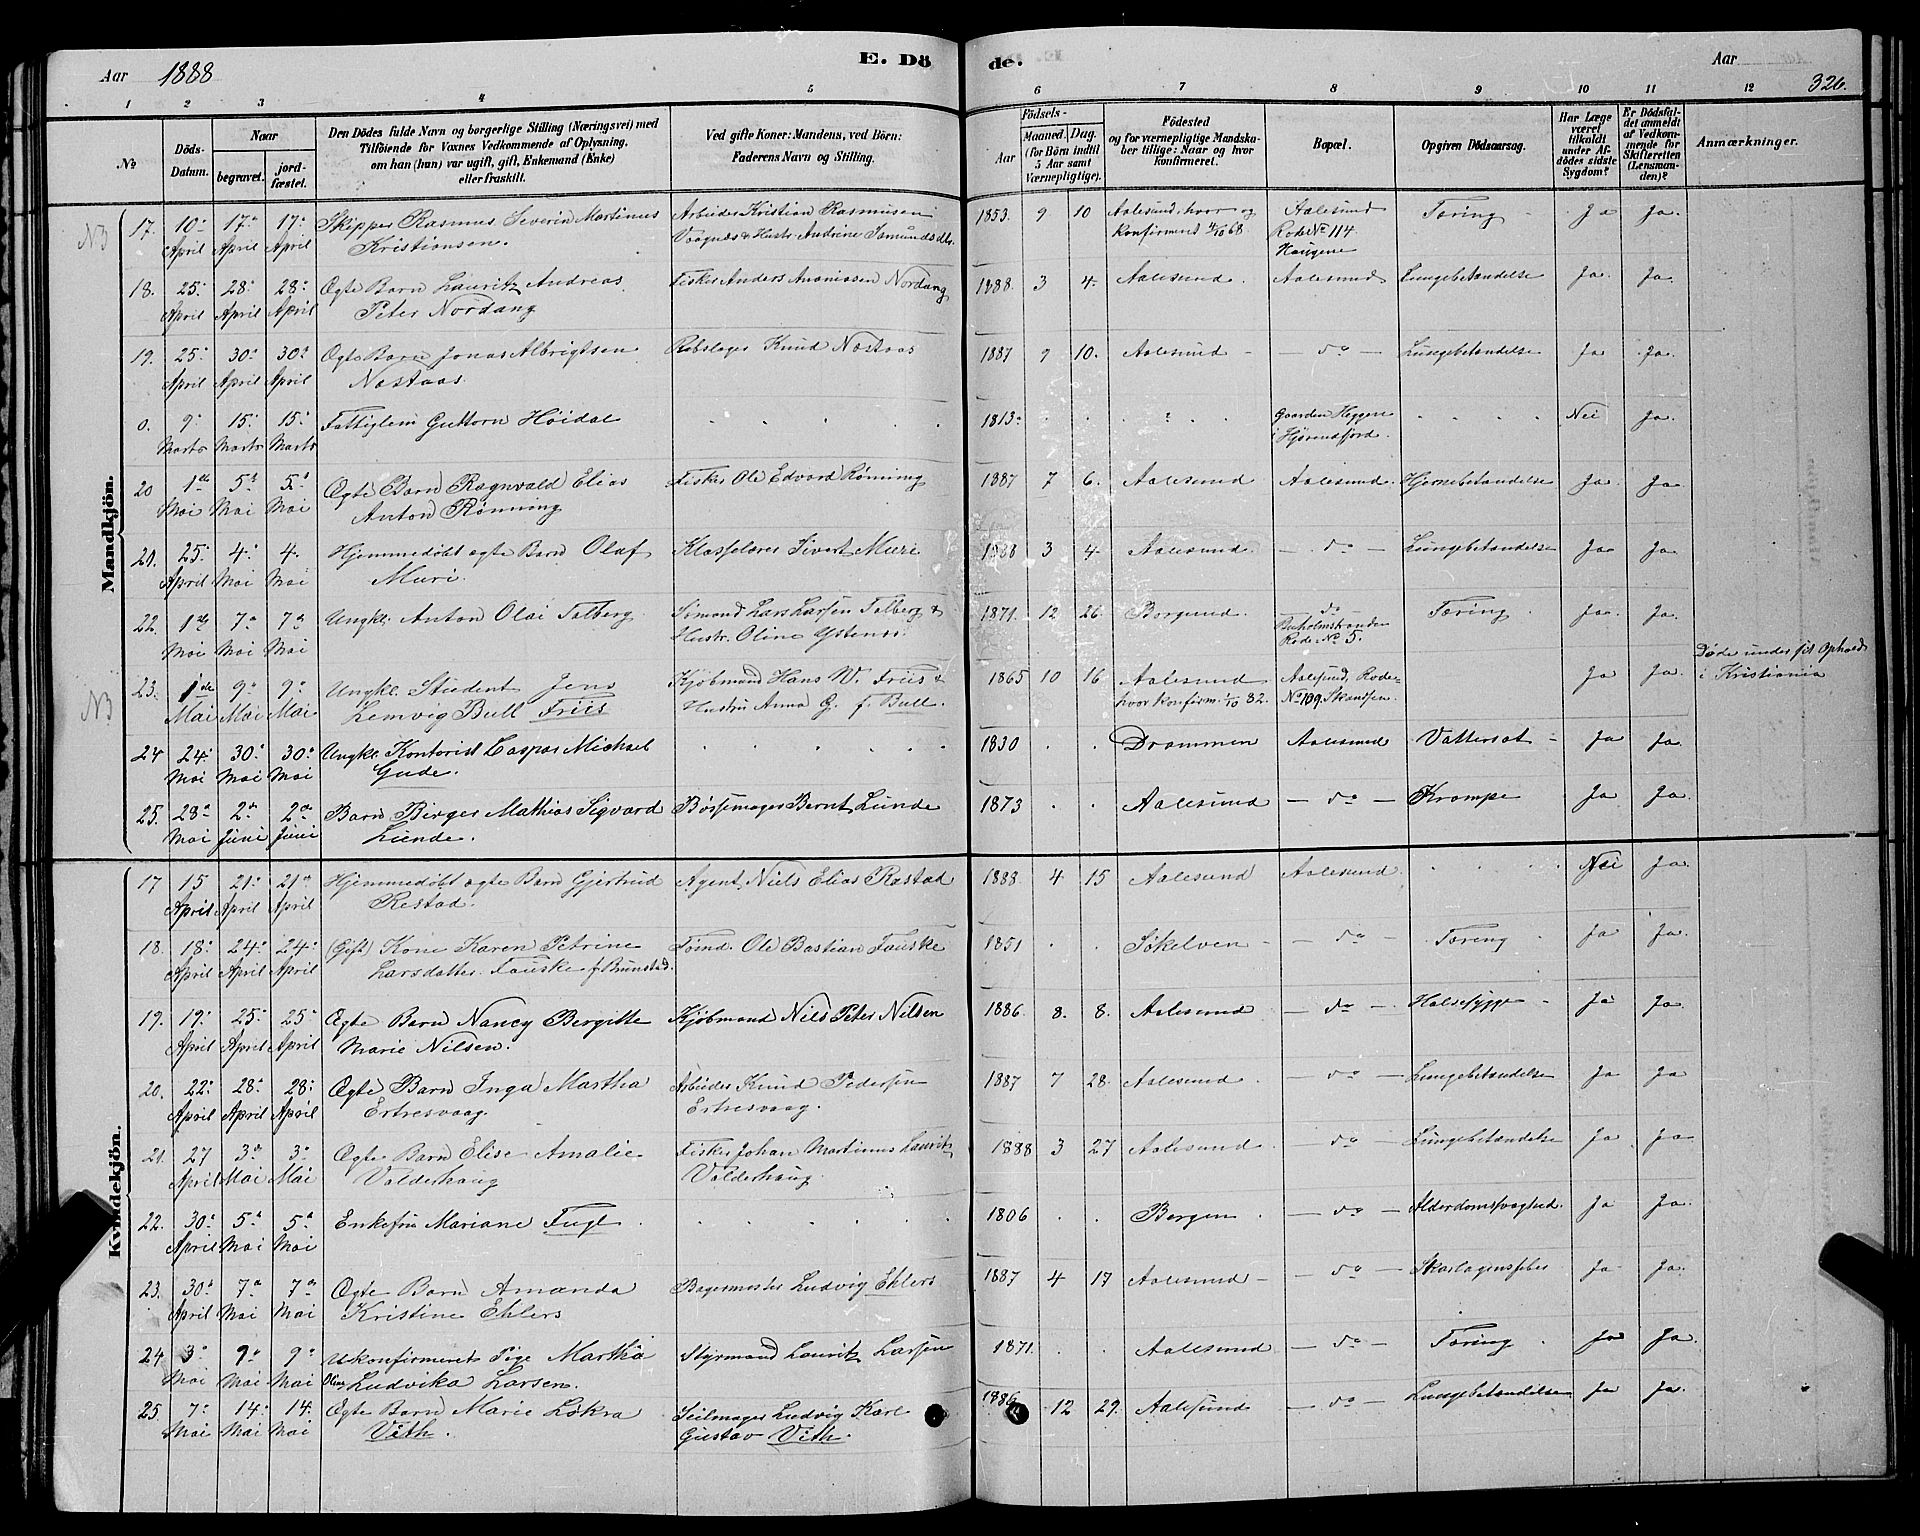 Aar 1888
E. Dö
de.
Aar
326.
1 2 3 4 5 6 7 8 9 10 11 12
No
Döds-Datum.
Naar
begravet.
jord-fæstet.
Den Dödes fulde Navn og borgerlige Stilling (Næringsvei) med
Tilföiende for Voxnes Vedkommende af Oplysning,
om han (hun) var ugift, gift, Enkemand (Enke)
eller fraskilt.
Ved gifte Koner: Mandens, ved Börn:
Faderens Navn og Stilling.
Födsels-
Aar
Maaned. Dag.
(for Börn indtil
5 Aar samt
Værnepligtige).
Födested
og for værnepligtige Mandska-
ber tillige: Naar og hvor
konfirmeret.
Bopæl.
Opgiven Dödsaarsag.
Har Læge
været
tilkaldt
under Af-
dödes sidste
Sygdom?
Er Dödsfal-
det anmeldt
af Vedkom-
mende for
Skifteretten
(Lensman-
den)?
Anmærkninger.
Mandkjön.
17. 10 April 17 April 17 April Skipper Rasmus Severin Martinus Kristiansen. Arbeider Kristian Rasmusen Vaagnæs & Hustr. Andrine 1853. 9 10 Aalesund, hvor og konfirmeret 4/10 68 Aalesund Rode No 114 Haugene Tæring Ja Ja
18. 25 April 28 April 28 April Ægte Barn Lauritz Andreas Peter Nordang Fisker Anders Ananiassen Nordang 1888. 3 4 Aalesund. Aalesund Lungebetændelse Ja Ja
19. 25 April 30 April 30 April Ægte Barn Jonas Albrigtsen Næstaas. Rebslager Knud Næstaas 1887 9 10. Aalesund do Lungebetændelse Ja Ja
0. 9 Marts 15 Marts 15 Marts Fattiglem Guttorm Höidal 1813 ? Gaarden Heggen i Hjörendfjord. Nei Ja
20 1ste Mai 5 Mai 5 Mai Ægte Barn Ragnvald Elias Anton Rönning Fisker Ole Edvard Rönning 1887 7 6. Aalesund Aalesund. Hjernebetændelse Ja Ja
21. 25 April 4 Mai 4 Mai Hjemmedöbt ægte Barn Olaf Muri. Klasselærer Sivert Muri 1888 3 4 Aalesund do Lungebetændelse Ja Ja
22. 1ste Mai 7 Mai 7 Mai Ungkl. Anton Olai Talberg Sömand Lars Larsen Talberg & Hustr. Oline 1871. 12 26 Borgund. do Buholmstranden Rode No 5. Tæring Ja Ja
23. 1ste Mai 9 Mai 9 Mai Ungkl. Student Jens Lemvig Bull Friis Kjöbmand Hans W. Friis & Hustru Anna G. f. Bull. 1865 10 16 Aalesund hvor konfirm. 1/10 82. Aalesund, Rode No 109. Skandsen. Ja Ja Döde under sit Ophold i Kristiania
24 24 Mai 30 Mai 30 Mai Ungkl. Kontorist Caspar Michael Gude. 1830 Drammen Aalesund Vattersot Ja Ja
25. 28 Mai 2 Juni 2 Juni Barn Birger Mathias Sigvard Lunde. Börsemager Bernt Lunde 1873 Aalesund do Krampe Ja Ja
Kvindekjön.
17 15 April 21 April 21 April Hjemmedöbt ægte Barn Gjertrud Restad. Agent Niels Elias Rastad 1888 4 15 Aalesund Aalesund Nei Ja
18. 18 April 24 April 24 April (Gift) Kone Karen Petrine Larsdatter Fauske f. Brunstad. Tömd. Ole Bastian Fauske 1851 Sökelven do Tæring Ja Ja
19. 19 April 25 April 25 April Ægte Barn Nancy Bergitte Marie Nilsen. Kjöbmand Nils Peter Nilsen 1886 8. 8. Aalesund do Halsesygge Ja Ja
20. 22 April 28 April 28 April Ægte Barn Inga Martha Ertresvaag. Arbeider Knud Pedersen Ertresvaag. 1887 7 28 Aalesund do Lungebetændelse Ja Ja
21. 27 April 3 Mai 3 Mai Ægte Barn Elise Amalie Valderhaug Fisker Johan Martinus Lauritz Valderhaug 1888 3 27 Aalesund do Lungebetændelse Ja Ja
22. 30 April 5 Mai 5 Mai Enkefru Mariane Fugl 1806 Bergen do Alderdomssvaghed. Ja Ja
23. 30 April 7 Mai 7 Mai Ægte Barn Amanda Kristine Ehlers Bagermester Ludvig Ehlers 1887 4 17 Aalesund do Skarlagensfeber Ja Ja
24. 3 Mai 9 Mai 9 Mai Ukonfirmeret Pige Martha Oline Ludvika Larsen. Styrmand Lauritz Larsen 1871. Aalesund do Tæring Ja Ja
25. 7 Mai 14 Mai 14 Mai Ægte Barn Marie Lökra Vith. Seilmager Ludvig Karl Gustav Vith. 1886 12 29. Aalesund do Lungebetændelse Ja Ja